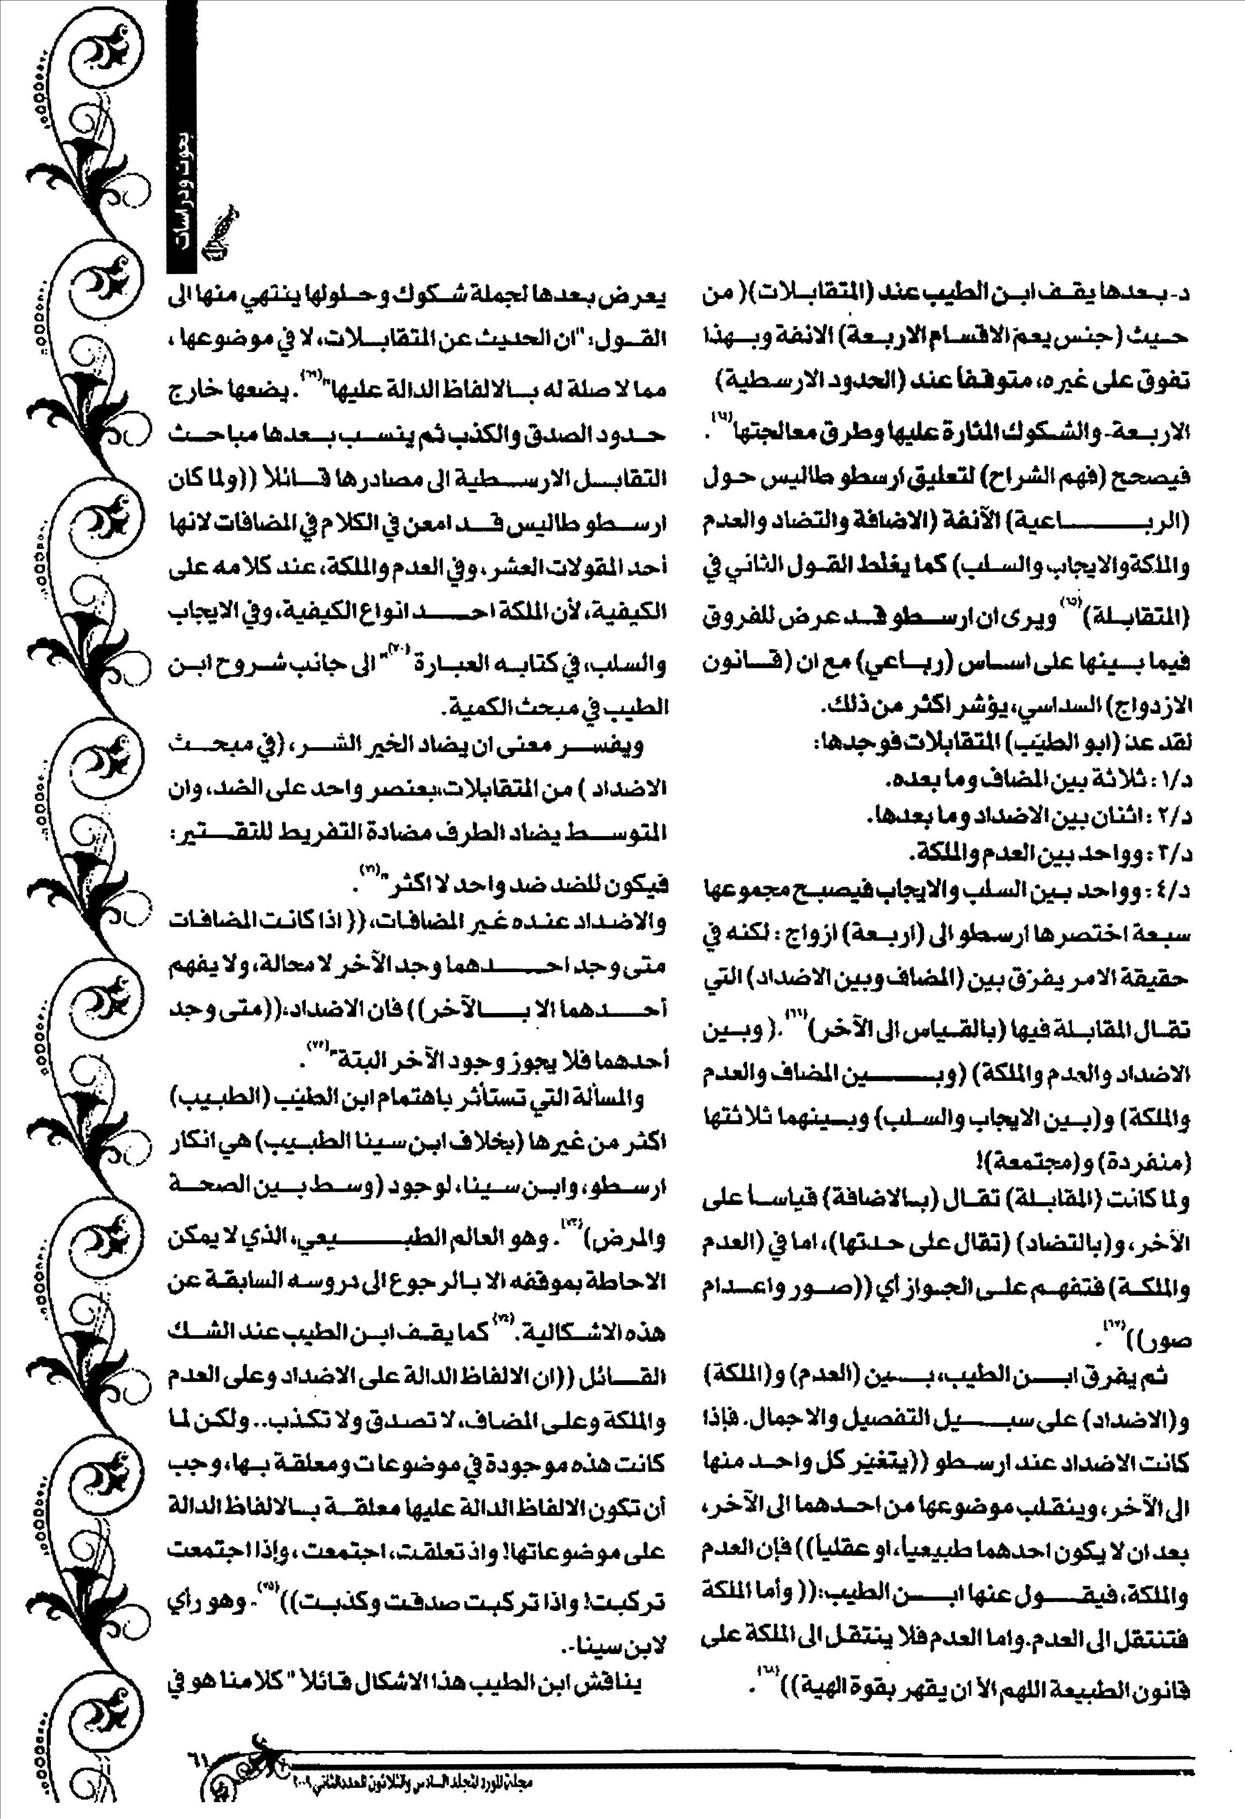 بحوث ودراسات
د- بعدها يقف ابن الطيب عند (المتقابلات)( من
حيث (جنس يعم الاقسام الاربعة) الانفة وبهذا
تفوق على غيره، متوقفاً عند (الحدود الارسطية)
الاربعة- والشكوك المثارة عليها وطرق معالجتها"(٦٤).
فيصحح (فهم الشراح) لتعليق ارسطو طاليس حول
(الرباعية) الآنفة (الاضافة والتضاد والعدم
والملكة والايجاب والسلب) كما يغلط القول الثاني في
(المتقابلة)(٦٥) ويرى ان ارسطو قد عرض للفروق
فيما بينها على اساس (رباعي) مع ان (قانون
الازدواج) السداسي، يؤشر اكثر من ذلك.
لقد عدّ (ابو الطيّب) المتقابلات فوجدها:
د/١: ثلاثة بين المضاف وما بعده.
د/٢: اثنان بين الاضداد وما بعدها.
د/٣: وواحد بين العدم والملكة.
د/٤: وواحد بين السلب والايجاب فيصبح مجموعها
سبعة اختصرها ارسطو الى (اربعة) ازواج: لكنه في
حقيقة الامر يفرّق بين (المضاف وبين الاضداد) التي
تقال المقابلة فيها (بالقياس الى الآخر)(٦٦). (وبين
الاضداد والعدم والملكة) (وبين المضاف والعدم
والملكة) و(بين الايجاب والسلب) وبينهما ثلاثتها
(منفردة) و(مجتمعة)!
ولما كانت (المقابلة) تقال (بالاضافة) قياساً على
الآخر، و(بالتضاد) (تقال على حدتها)، اما في (العدم
والملكة) فتفهم على الجواز أي ((صور واعدام
صور))(٦٧).
ثم يفرق ابن الطيب، بين (العدم) و(الملكة)
و(الاضداد) على سبيل التفصيل والاجمال. فإذا
كانت الاضداد عند ارسطو ((يتغيّر كل واحد منها
الى الآخر، وينقلب موضوعها من احدهما الى الآخر،
بعد ان لا يكون احدهما طبيعياً، او عقلياً)) فإن العدم
والملكة، فيقول عنها ابن الطيب: ((وأما الملكة
فتنتقل الى العدم. واما العدم فلا ينتقل الى الملكة على
قانون الطبيعة اللهم الأ ان يقهر بقوة الهية))(٦٨).
يعرض بعدها لجملة شكوك وحلولها ينتهي منها الى
القول: "ان الحديث عن المتقابلات، لا في موضوعها،
مما لا صلة له بالالفاظ الدالة عليها"(٦٩). يضعها خارج
حدود الصدق والكذب ثم ينسب بعدها مباحث
التقابل الارسطية الى مصادرها قائلاً ((ولما كان
ارسطو طاليس قد امعن في الكلام في المضافات لانها
أحد المقولات العشر، وفي العدم والملكة، عند كلامه على
الكيفية، لأن الملكة احد انواع الكيفية، وفي الايجاب
والسلب، في كتابه العبارة(٧٠)" الى جانب شروح ابن
الطيب في مبحث الكمية.
ويفسر معنى ان يضاد الخير الشر، (في مبحث
الاضداد) من المتقابلات، بعنصر واحد على الضد، وان
المتوسط يضاد الطرف مضادة التفريط للتقتير:
فيكون للضد ضد واحد لا اكثر"(٧١).
والاضداد عنده غير المضافات، ((اذا كانت المضافات
متى وجد احدهما وجد الآخر لا محالة، ولا يفهم
أحدهما الا بالآخر)) فان الاضداد، ((متى وجد
أحدهما فلا يجوز وجود الآخر البتة"(٧٢).
والمسألة التي تستأثر باهتمام ابن الطيّب (الطبيب)
اكثر من غيرها (بخلاف ابن سينا الطبيب) هي انكار
ارسطو، وابن سينا، لوجود (وسط بين الصحة
والمرض)(٧٣). وهو العالم الطبيعي، الذي لا يمكن
الاحاطة بموقفه الا بالرجوع الى دروسه السابقة عن
هذه الاشكالية.(٧٤) كما يقف ابن الطيب عند الشك
القائل ((ان الالفاظ الدالة على الاضداد وعلى العدم
والملكة وعلى المضاف، لا تصدق ولا تكذب.. ولكن لما
كانت هذه موجودة في موضوعات ومعلقة بها، وجب
أن تكون الالفاظ الدالة عليها معلقة بالالفاظ الدالة
على موضوعاتها! واذ تعلقت، اجتمعت، وإذا اجتمعت
تركبت! واذا تركبت صدقت وكذبت))(٧٥). وهو رأي
لابن سينا-.
يناقش ابن الطيب هذا الاشكال قائلاً "كلامنا هو في
٦١
مجلة المورد المجلد السادس والثلاثون العدد الثاني ٢٠٠٩